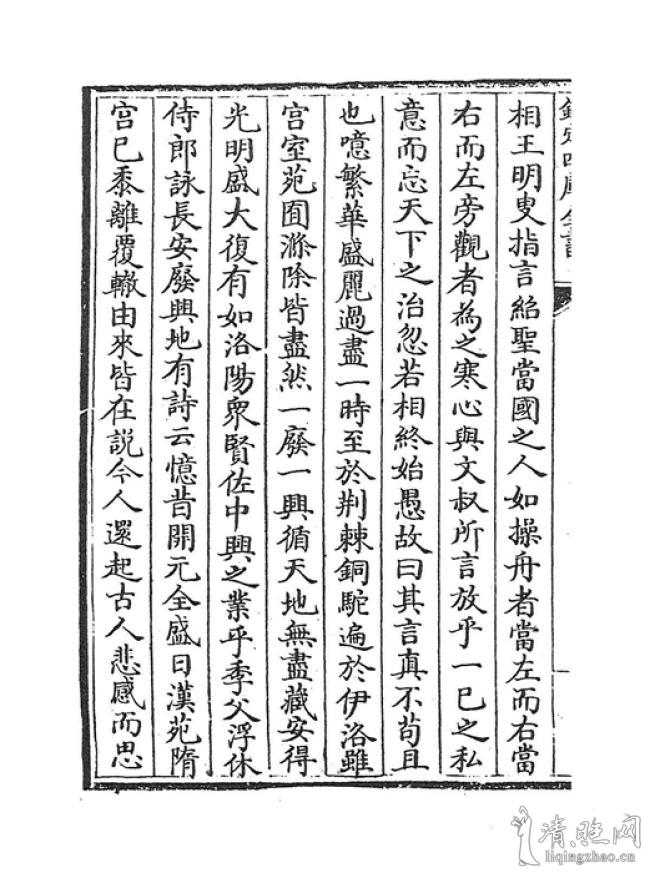 欽定四庫全書
相王明叟指言紹聖當國之人如操舟者當左而右當
右而左旁觀者為之寒心與文叔所言放乎一己之私
意而忘天下之治忽若相終始愚故曰其言真不苟且
也噫繁華盛麗過盡一時至於荆棘銅駝遍於伊洛雖
宫室苑囿滌除皆盡然一廢一興循天地無盡藏安得
光明盛大復有如洛陽衆賢佐中興之業乎季父浮休
侍郎詠長安廢興地有詩云憶昔開元全盛日漢苑隋
宫已黍離覆轍由來皆在説今人還起古人悲感而思
清照网
liqingzhao.cn